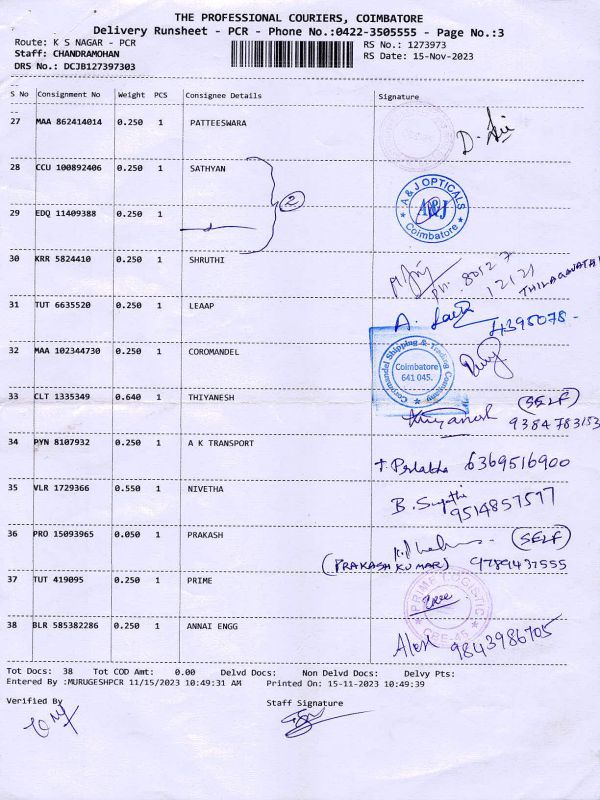 THE PROFESSIONAL COURIERS, COIMBATORE
Delivery Runsheet - PCR - Phone No.:0422-3505555 - Page No.:3
Route: K S NAGAR - PCR RS No.: 1273973
Staff: CHANDRAMOHAN RS Date: 15-Nov-2023
DRS No.: DCJB127397303
S No Consignment No Weight PCS Consignee Details Signature
27 MAA 862414014 0.250 1 PATTEESWARA
28 CCU 100892406 0.250 1 SATHYAN
2
A & J OPTICALS
A&J
Coimbatore
29 EDQ 11409388 0.250 1
30 KRR 5824410 0.250 1 SHRUTHI
PH: 80127
12121
THILAGAVATHI
31 TUT 6635520 0.250 1 LEAAP
A.
4395078 -
32 MAA 102344730 0.250 1 COROMANDEL
Coromandel Shipping & Trading Company
Coimbatore
641 045.
33 CLT 1335349 0.640 1 THIYANESH
Thiyanesh (SELF)
9384783153
34 PYN 8107932 0.250 1 A K TRANSPORT
6369516900
35 VLR 1729366 0.550 1 NIVETHA
B.
9514857577
36 PRO 15093965 0.050 1 PRAKASH
(SELF)
(PRAKASH KUMAR) 9789437555
37 TUT 419095 0.250 1 PRIME
PRIME
CBE-45
38 BLR 585382286 0.250 1 ANNAI ENGG
9843986705
Tot Docs: 38 Tot COD Amt: 0.00 Delvd Docs: Non Delvd Docs: Delvy Pts:
Entered By :MURUGESHPCR 11/15/2023 10:49:31 AM Printed On: 15-11-2023 10:49:39
Verified By Staff Signature